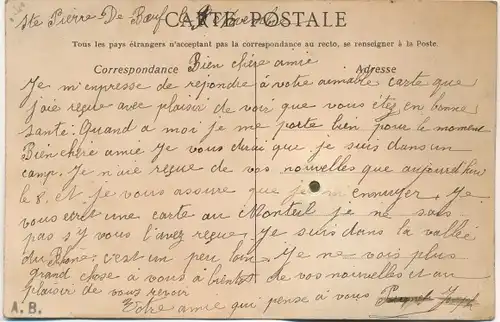 Ste Pierre De Bœuf le 8
CARTE POSTALE
Tous les pays étrangers n'acceptant pas la correspondance au recto, se renseigner à la Poste.
Correspondance
Adresse
Bien chère amie
Je m'empresse de repondre á votre aimable carte que
j'aie reçue avec plaisir de voir que vous étes en bonne
santé. Quand a moi je me porte bien pour le moment
Bien chère amie Je vous dirai que je suis dans un
camp. Je n'aie reçue de vos nouvelles que aujourd'hui
le 8. et je vous assure que je ennuyer. Je
vous ecrit une carte au Monteil je ne sais
pas s'y vous l'avez reçue, Je suis dans la vallée
du Rhone. c'est un peu loin. Je ne vois plus
grand chose a vous à bientot de vos nouvelles et au
plaisir de vous revoir
Votre amie qui pense à vous Joseph
A. B.